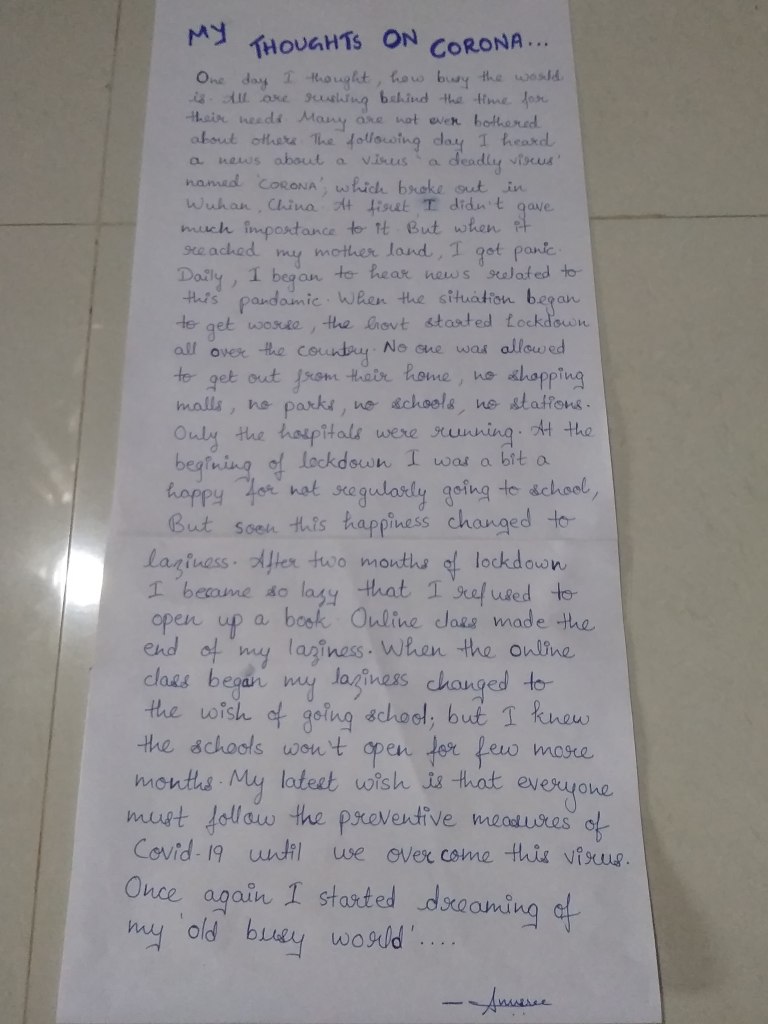 MY THOUGHTS ON CORONA...
One day I thought, how busy the world
is. All are rushing behind the time for
their needs Many are not even bothered
about others. The following day I heard
a news about a virus 'a deadly virus'
named 'CORONA', which broke out in
Wuhan, China. At first I didn't gave
much importance to it. But when it
reached my mother land, I got panic.
Daily, I began to hear news related to
this pandamic. When the situation began
to get worse, the Govt started Lockdown
all over the country. No one was allowed
to get out from their home, no shopping
malls, no parks, no schools, no stations.
Only the hospitals were running. At the
begining of lockdown I was a bit a
happy for not regularly going to school,
But soon this happiness changed to
laziness. After two months of lockdown
I became so lazy that I refused to
open up a book Online class made the
end of my laziness. When the online
class began my laziness changed to
the wish of going school; but I knew
the schools won't open for few more
months. My latest wish is that everyone
must follow the preventive measures of
Covid-19 until we over come this virus.
Once again I started dreaming of
my 'old busy world'....